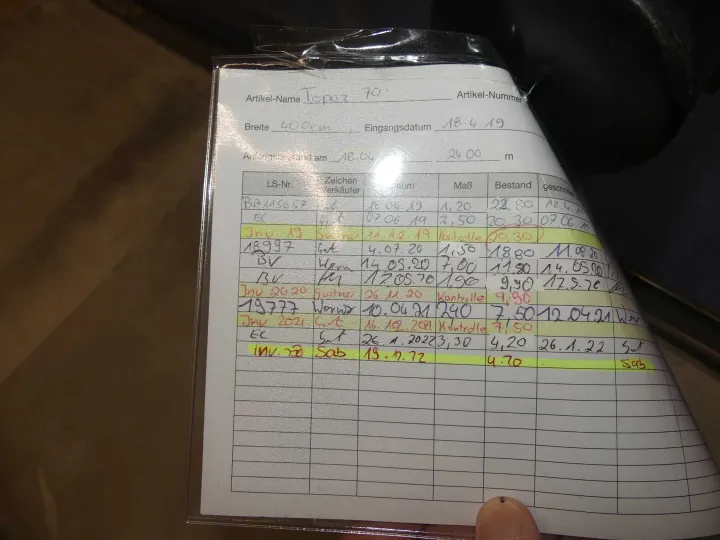 Artikel-Name Topaz 70 Artikel-Nummer
Breite 400cm Eingangsdatum 18.4.19
Anfangsbestand am 18.04 24.00 m
LS-Nr. Zeichen Verkäufer Datum Maß Bestand
Gut 18.04.19 1,20 22,80
EC Gut 07.06.19 2,50 20.30 07.06
Inv. 19 11.12.19 Kontrolle 20,30
18997 Gut 4.07.20 1,50 18.80 11.08.20
BV Wern 14.09.20 7,00 11.80 14.09.20
BV 190 9,90
Inv 2020 26.11.20 Kontrolle 9,90
19777 Werner 10.04.21 240 7.50 12.04.21
Inv 2021 Gut Kontrolle 7,50
EC Gut 26.1.2022 3,30 4,20 26.1.22 Gut
Inv. 22 Sab 4.20 Sab